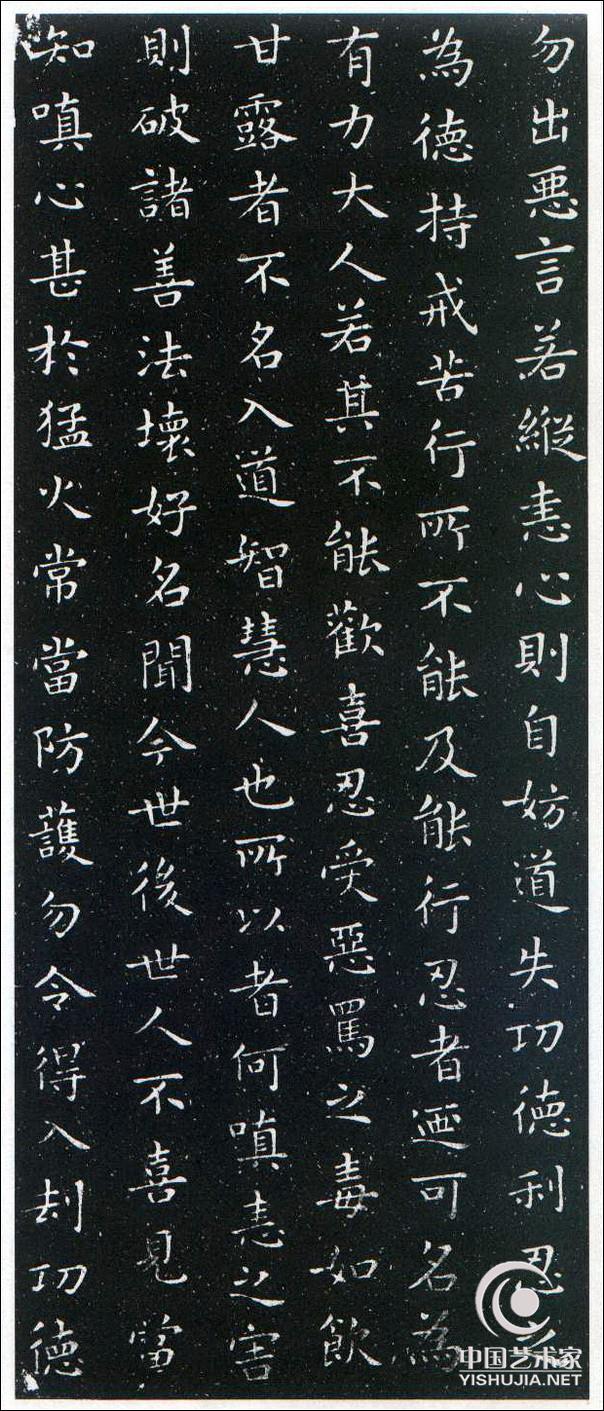 勿出惡言若縱恚心則自妨道失功德利忍之
為德持戒苦行所不能及能行忍者迺可名為
有力大人若其不能歡喜忍受惡罵之毒如飲
甘露者不名入道智慧人也所以者何嗔恚之害
則破諸善法壞好名聞今世後世人不喜見當
知嗔心甚於猛火常當防護勿令得入刦功德
中国艺术家
YISHUJIA.NET